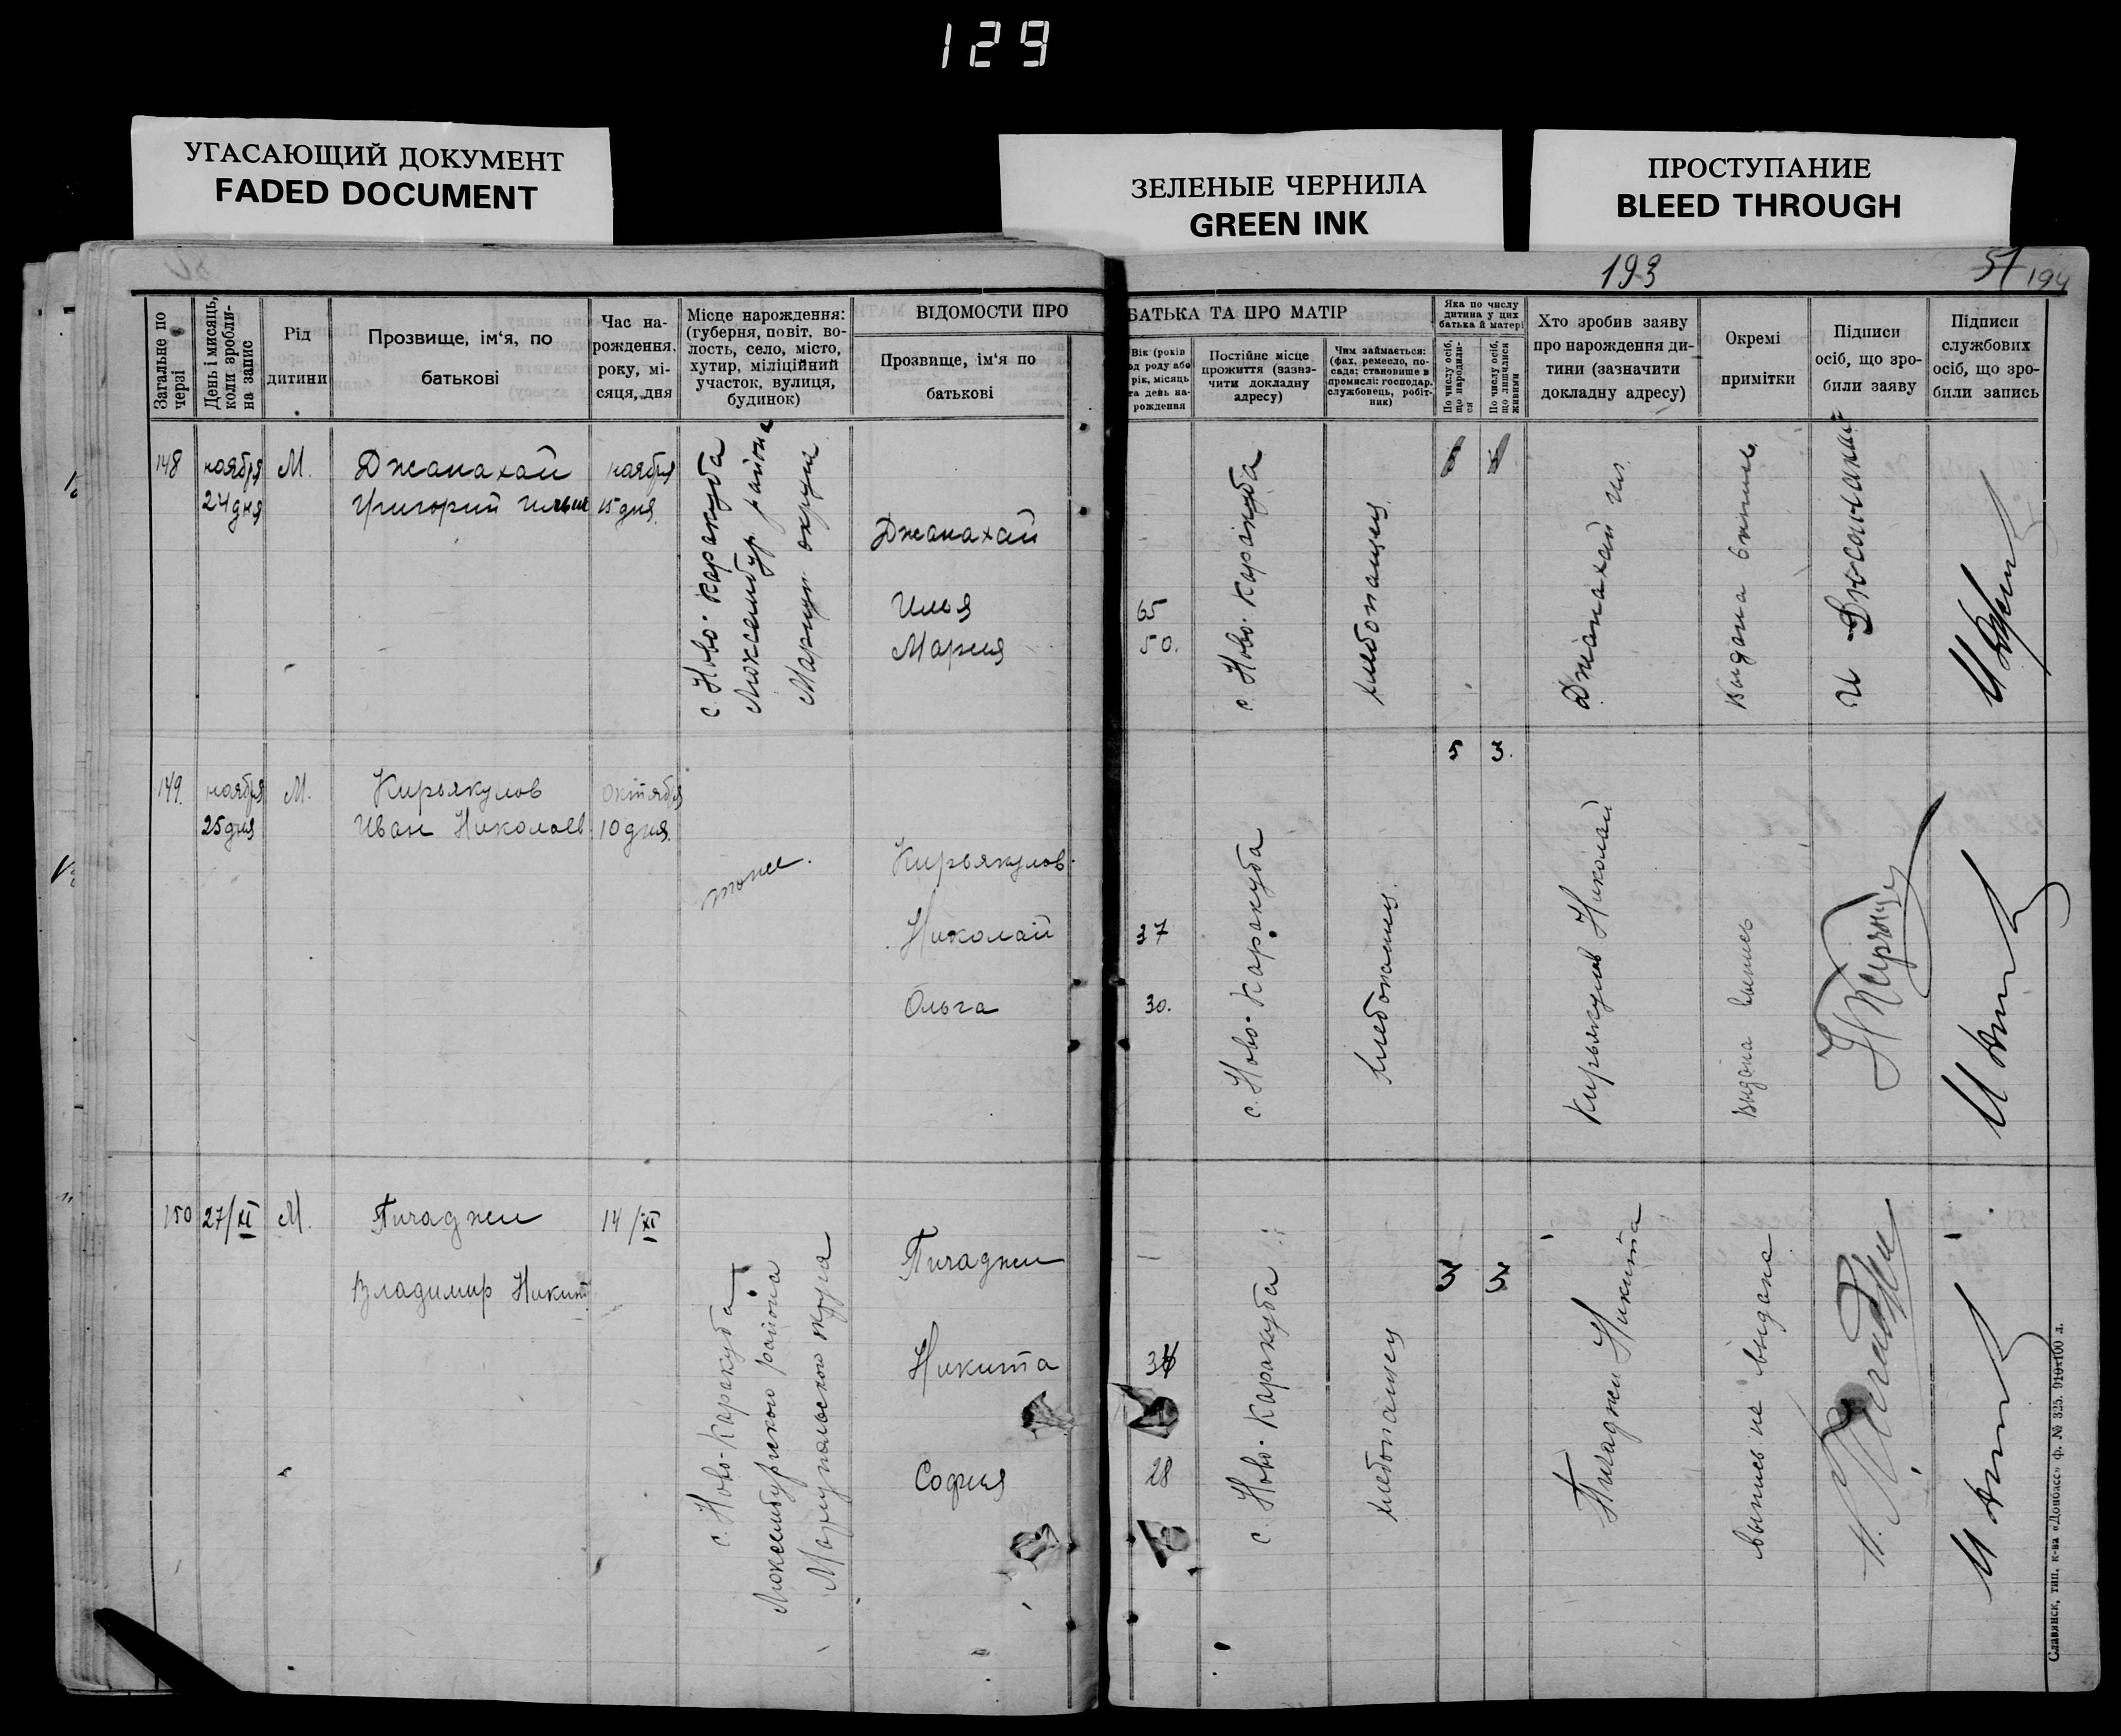 129
УГАСАЮЩИЙ ДОКУМЕНТ
FADED DOCUMENT
ЗЕЛЕНЫЕ ЧЕРНИЛА
GREEN INK
ПРОСТУПАНИЕ
BLEED THROUGH
193
51 194
Загальне по
черзі
День і мисяць,
коли зробли-
на запис
Рід
дитини
Прозвище, ім‘я, по
батькові
Час на-
рождення,
року, мі-
сяця, дня
Місце нарождення:
(губерня, повіт, во-
лость, село, місто,
хутир, міліційний
участок, вулиця,
будинок)
ВІДОМОСТИ ПРО
Прозвище, ім‘я по
батькові
БАТЬКА ТА ПРО МАТІР
Вік (років
од роду або
рік, місяць
та день на-
рождення
Постійне місце
прожиття (зазна-
чити докладну
адресу)
Чим займається:
(фах, ремесло, по-
сада; становище в
промислі: господар,
службовець, робіт-
ник)
Яка по числу
дитина у цих
батька й матері
По числу осіб,
що народили-
ся
По числу осіб,
що лишилися
живими
Хто зробив заяву
про нарождення ди-
тини (зазначити
докладну адресу)
Окремі
примітки
Підписи
осіб, що зро-
били заяву
Підписи
службових
осіб, що зро-
били запись
148
ноября
24 дня
М.
Джанахай
Григорий Ильич
ноября
15 дня.
с. Ново-Каракуба
Люксембур. района
Мариуп округи
Джанахай
Илья
Мария
65
50.
с. Ново-Каракуба
хлебопашец
Джанахай Ил.
Выдана
149.
ноября
25 дня
М.
Кирьякулов
Иван Николаев
октября
10 дня.
тоже.
Кирьякулов
Николай
Ольга
37
30.
с. Ново-Каракуба
хлебопашец
3 3.
Кирьякулов Николай
Выдана выпись
150
27/XI
М.
Пичаджи
Владимир Никит
14/XI
с. Ново-Каракуба
Люксембургского района
Мариупольского округа
Пичаджи
Никита
София
28
с. Ново-Каракуба
хлебопашец
3 3
Пичаджи Никита
выпись не выдана
Славянск, тип. к-ва «Донбасс» ф. № 325. 910×100 л.